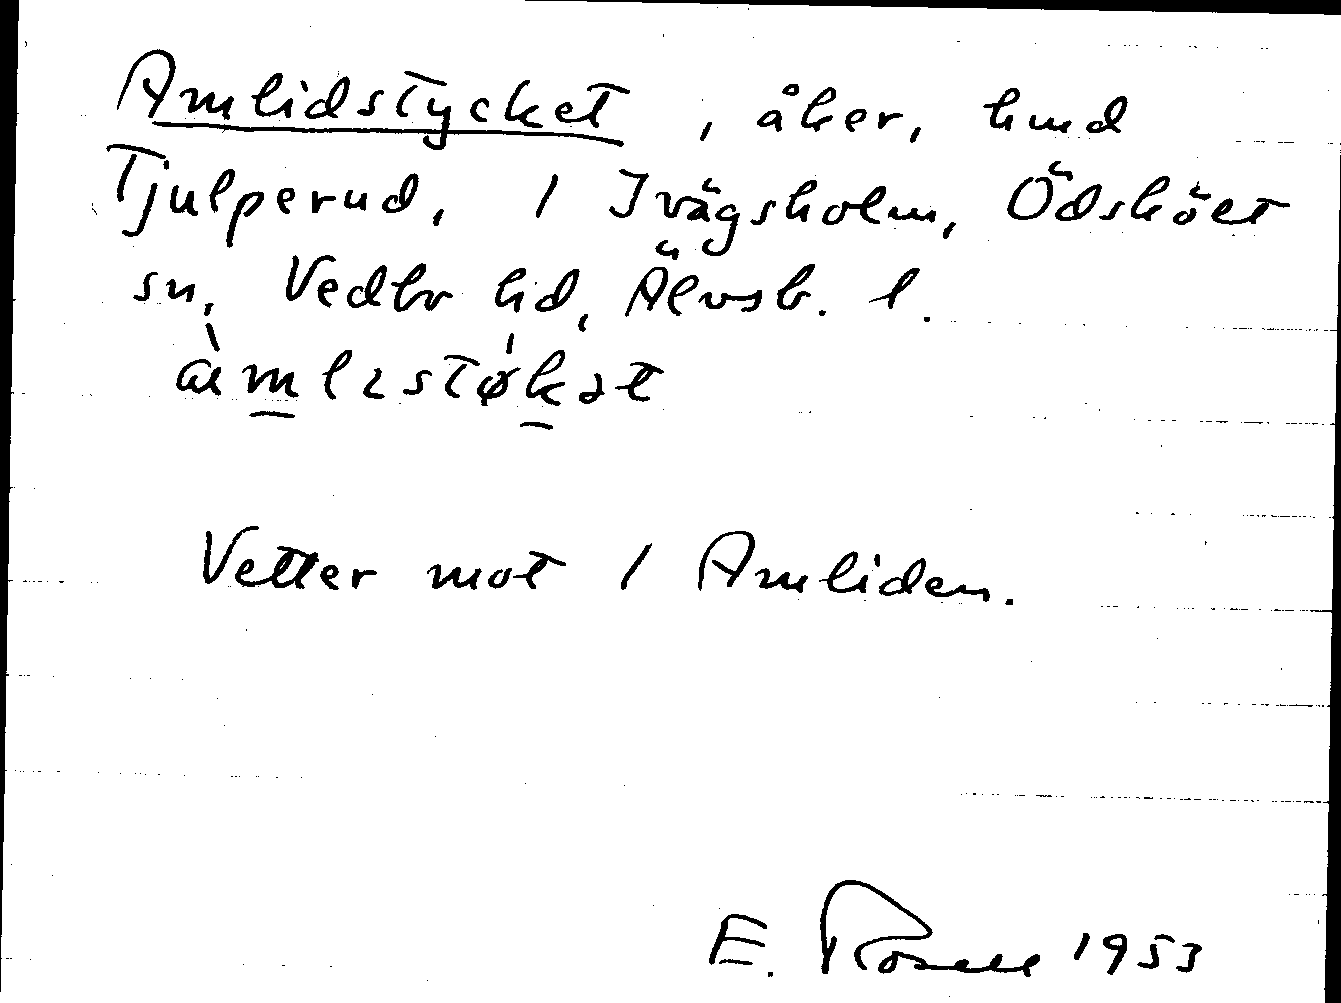 Amlidstycket, åker, hmd
Tjulperud, / Ivägsholm, Ödskölt
sn, Vedbo hd, Älvsb. l.
Vetter mot / Amliden.
E. Rosell 1953